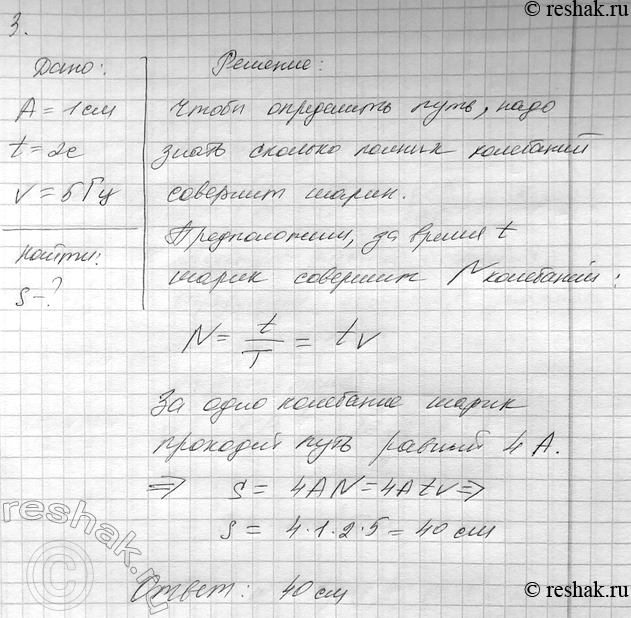 © reshak.ru
3.
Дано:
A = 1 см
t = 2с
ν = 5 Гц
Найти:
S - ?
Решение:
Чтобы определить путь, надо
знать сколько полных колебаний
совершит шарик.
Предположим, за время t
шарик совершит N колебаний:
N = t/T = tν
За одно колебание шарик
проходит путь равный 4A.
⇒ S = 4AN = 4Atν ⇒
S = 4·1·2·5 = 40 см
Ответ: 40 см
reshak.ru
© reshak.ru